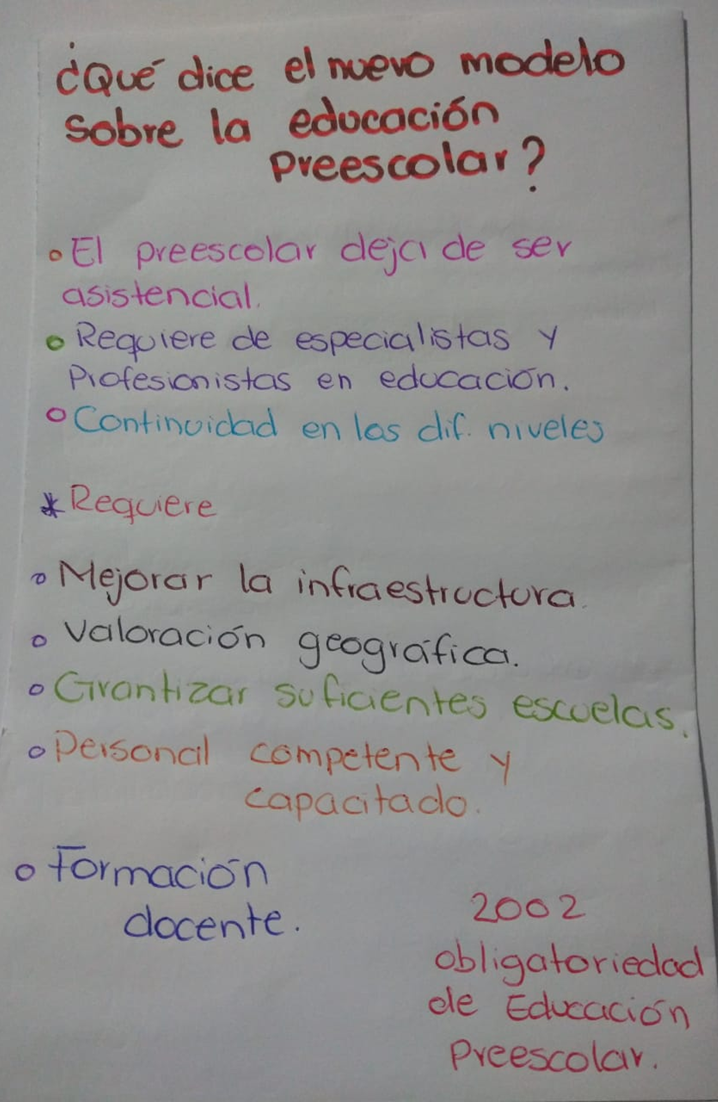 ¿Qué dice el nuevo modelo
sobre la educación
preescolar?
• El preescolar deja de ser
asistencial.
• Requiere de especialistas y
Profesionistas en educación.
• Continuidad en los dif. niveles
* Requiere
• Mejorar la infraestructura.
• Valoración geográfica.
• Grantizar suficientes escuelas.
• Personal competente y
capacitado.
• Formación
docente.
2002
obligatoriedad
de Educación
Preescolar.